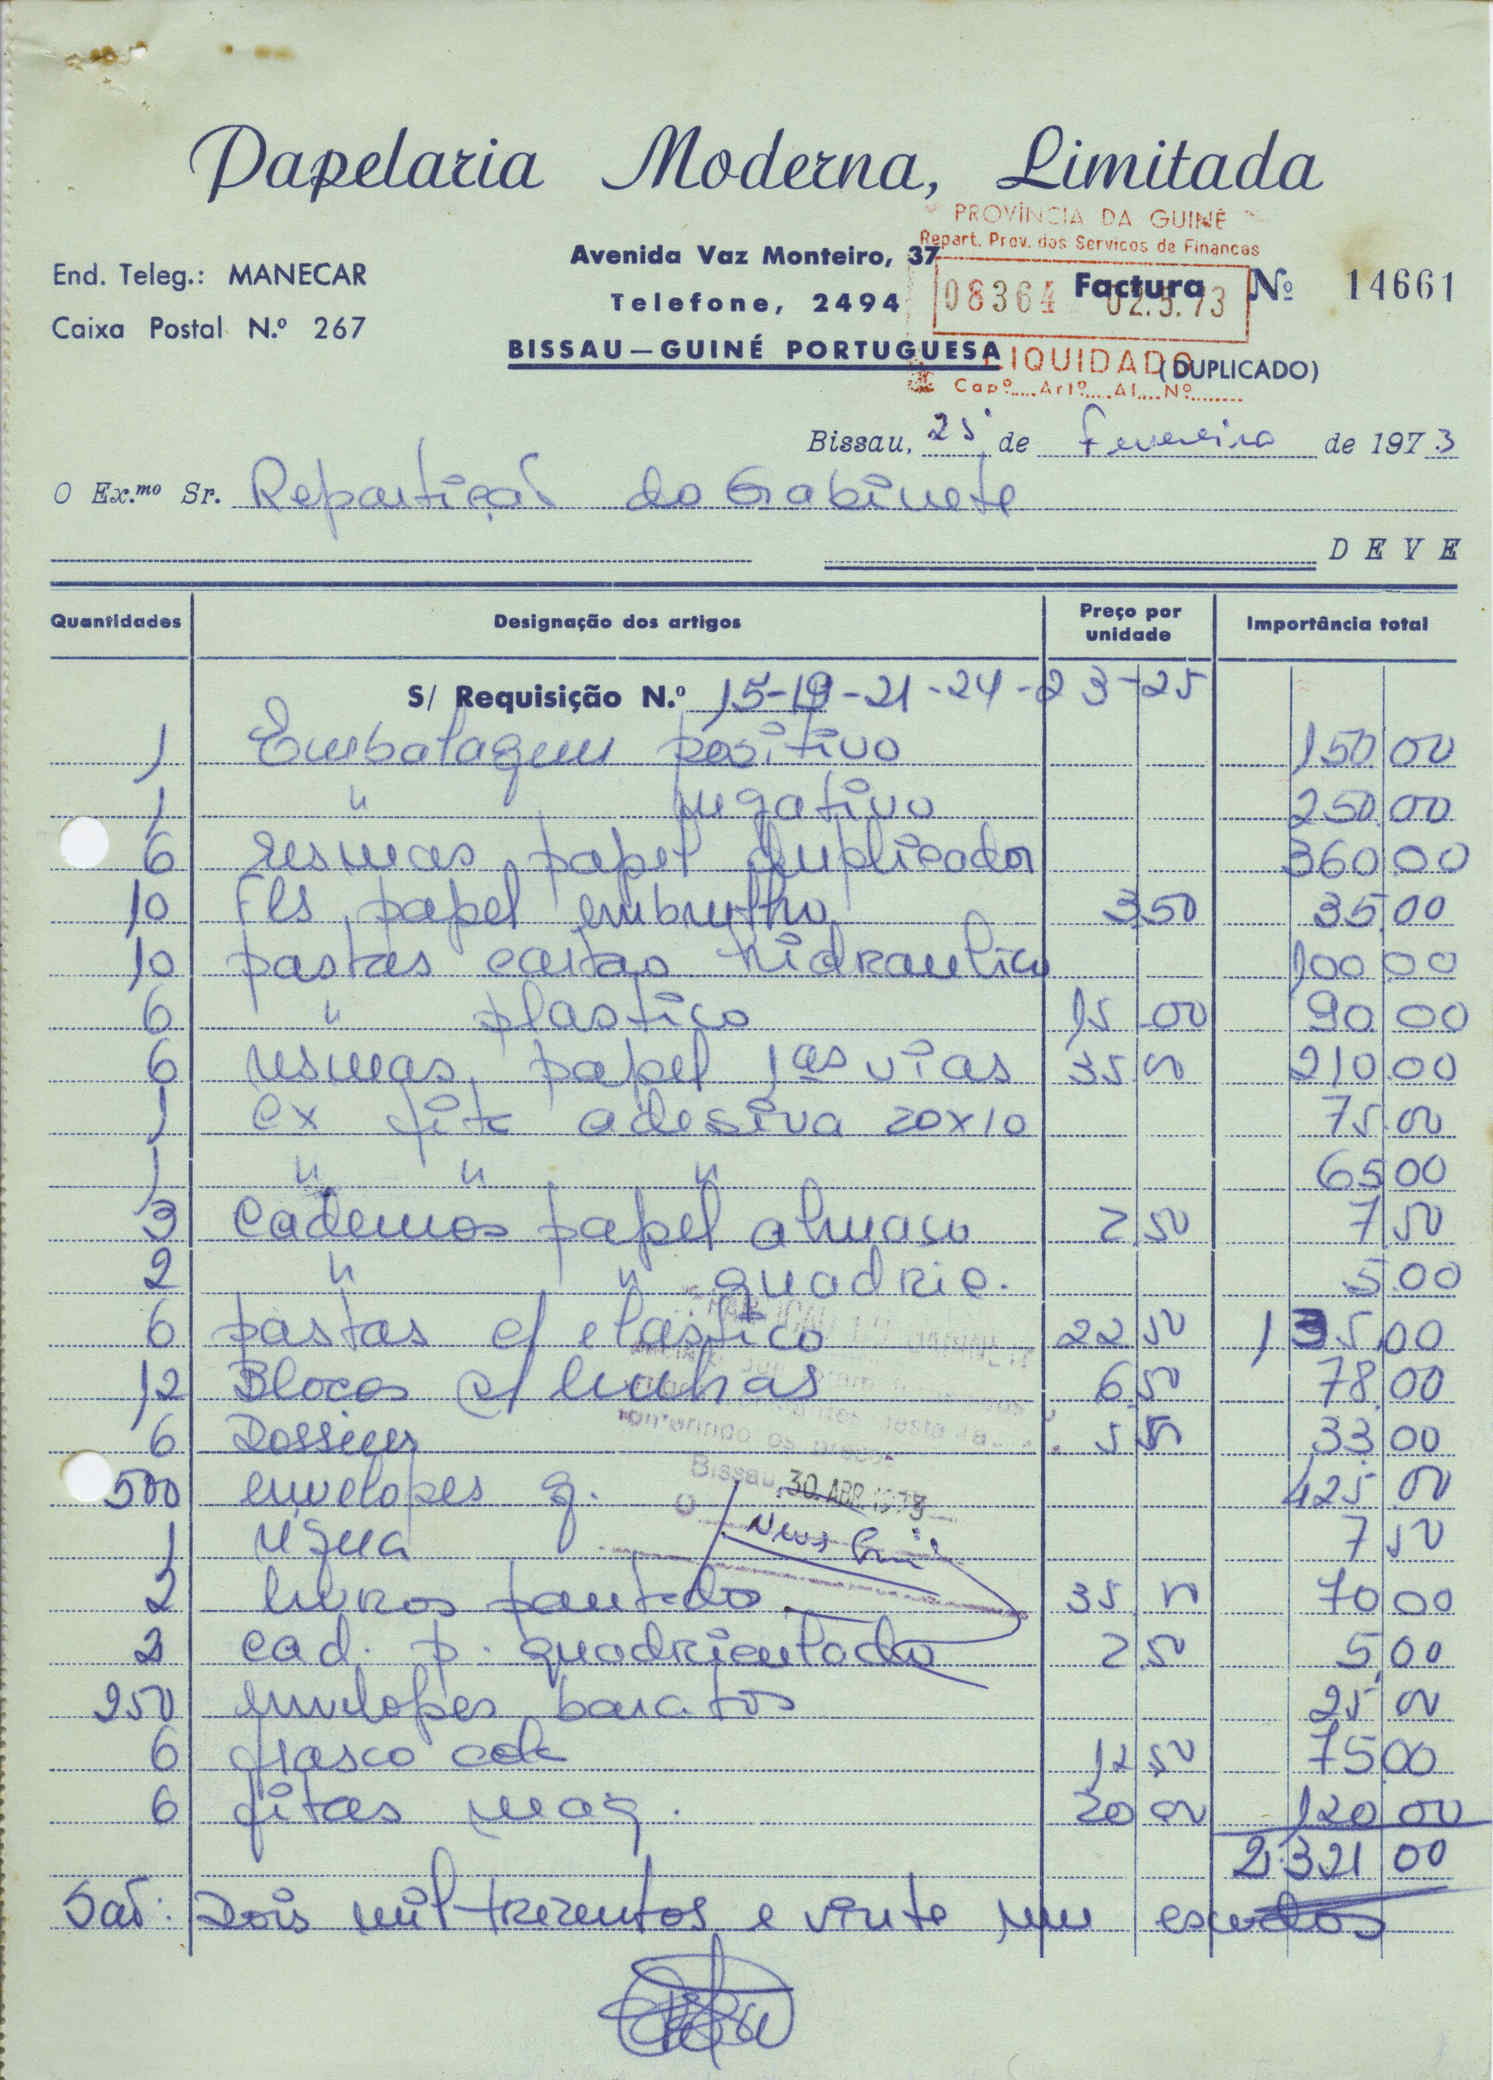 Papelaria Moderna, Limitada
PROVÍNCIA DA GUINÉ
Repart. Prov. dos Serviços de Finanças
End. Teleg.: MANECAR
Caixa Postal N.º 267
Avenida Vaz Monteiro, 37
Telefone, 2494
BISSAU — GUINÉ PORTUGUESA
08364 02.5.73
Factura Nº 14661
LIQUIDADO
(DUPLICADO)
Capº.....Artº.....Al....Nº........
Bissau, 25 de Fevereiro de 1973
O Ex.mo Sr. Repartição do Gabinete
DEVE
Quantidades Designação dos artigos Preço por unidade Importância total
S/ Requisição N.º 15-19-21-24-23-25
1 Embalagem positivo 150,00
1 " negativo 250,00
6 resmas papel duplicador 360,00
10 Fls papel embrulho 3,50 35,00
10 pastas cartão hidraulico 100,00
6 " plastico 15,00 90,00
6 resmas papel 1as vias 35,00 210,00
1 cx fita adesiva 20x10 75,00
1 " " " 65,00
3 Cadernos papel almaço 2,50 7,50
2 " " quadric. 5,00
6 pastas c/ elastico 22,50 135,00
12 Blocos c/ linhas 6,50 78,00
6 Dossiers 5,50 33,00
500 envelopes g. 425,00
Bissau, 30 ABR. 1973
O
1 régua 7,50
2 livros pautado 35,00 70,00
2 cad. p. quadriculado 2,50 5,00
250 envelopes baratos 25,00
6 frasco cola 12,50 75,00
6 fitas mag. 20,00 120,00
2.321,00
São: Dois mil trezentos e vinte um escudos